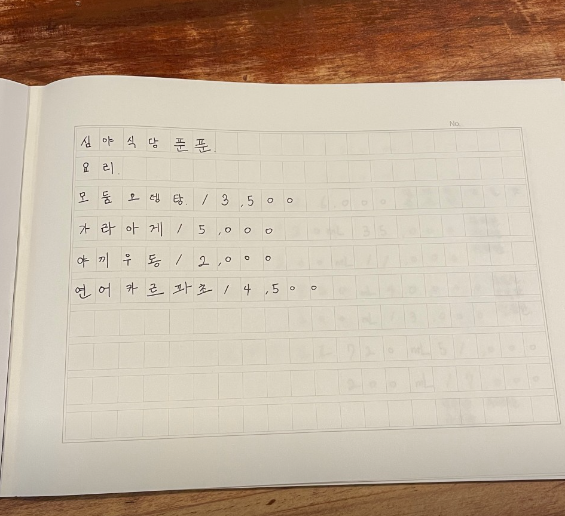 No.
심야식당 푼푼.
요리.
모둠오뎅탕 13,500
가라아게 15,000
야끼우동 12,000
연어카르파쵸 14,500